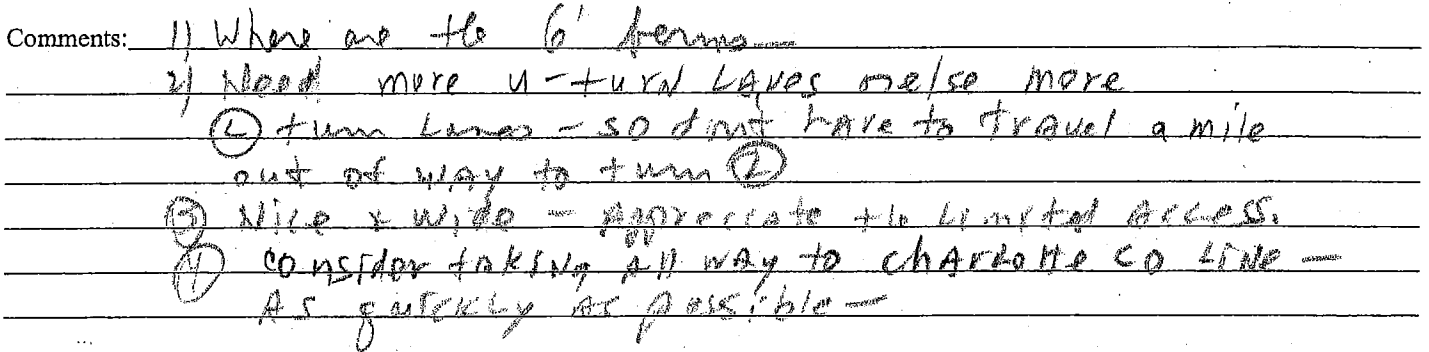 Comments: 1) Where are the 6' berms —
2) Need more u-turn LANES or else more
Ⓛ turn Lanes - so don't have to travel a mile
out of way to turn Ⓛ
③ Nice & Wide - Appreciate the Limited Access.
④ consider taking all way to charlotte co LINE —
As quickly as possible —